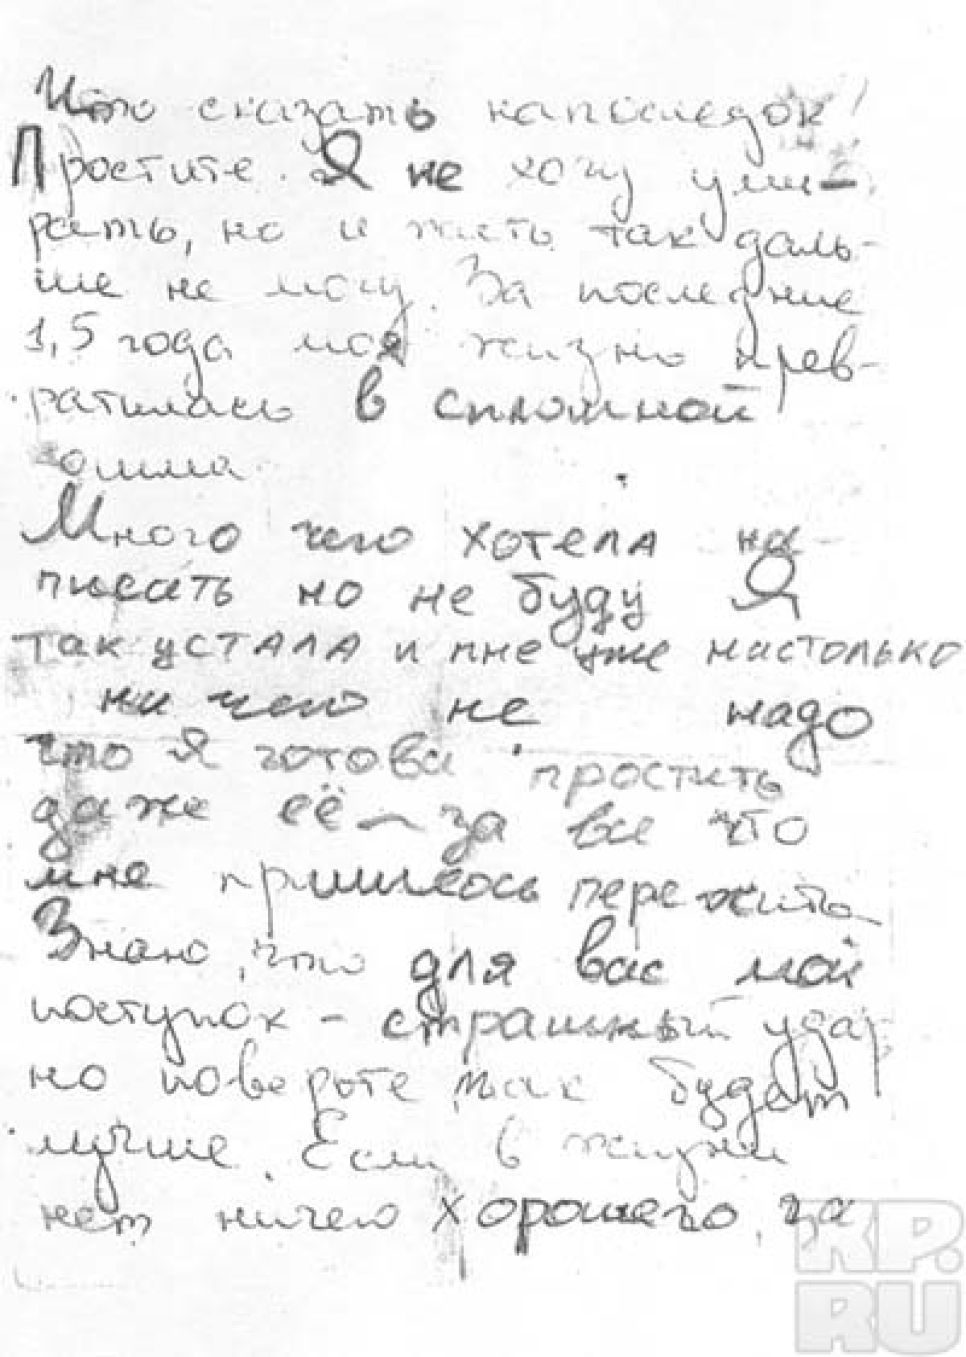 Что сказать напоследок!
Простите. Я не хочу уми-
рать, но и жить так даль-
ше не могу. За последние
1,5 года моя жизнь прев-
ратилась в сплошной
Много чего хотела на-
писать но не буду Я
так устала и мне уже настолько
ни чего не надо
что я готова простить
даже её – за все что
мне пришлось пережить
Знаю, что для вас мой
поступок – страшный удар
но поверьте так будет
лучше. Если в жизни
нет ничего хорошего, за
KP.
RU